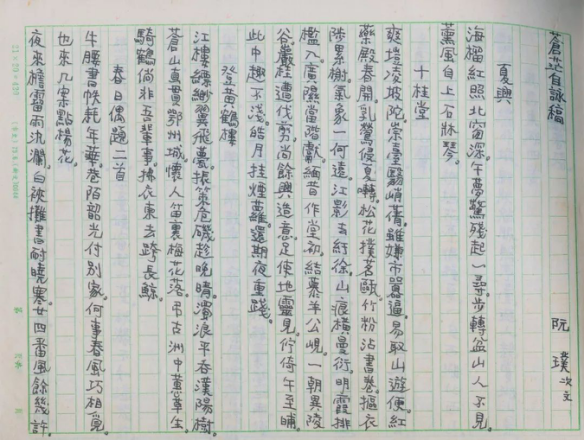 蒼茫自詠稿
阮璞 次文
夏興
海榴紅照北窗深。午夢驚殘起一尋。步轉盆山人不見。
薰風自上石牀琴。
十桂堂
爽塏凌坡陀。崇臺翳峭蒨。雖嫌市囂逼。易馭山遊便。紅
藥殿春開。乳鶯侵夏囀。松花撲茗甌。竹粉沾書卷。摳衣
陟累榭。氣象一何遠。江影去紆徐。山痕橫曼衍。明霞排
檻入。廣隰當階獻。緬昔作堂初。結纍羊公峴。一朝異陵
谷。叢桂遭伐剪。尚餘興造意。足使地靈見。佇倚午至晡。
此中趣不淺。皓月挂煙蘿。還期夜重踐。
登黃鶴樓
江樓縹緲翼飛甍。振策危磯趁晚晴。濁浪平吞漢陽樹。
蒼山直貫鄂州城。懷人笛裏梅花落。弔古洲中蕙草生。
騎鶴倘非吾輩事。拂衣東去跨長鯨。
春日偶題二首
牛腰書帙耗年華。巷陌韶光付別家。何事春風巧相覓。
也來几案點楊花。
夜來檐霤雨汍瀾。白袂攤書耐曉寒。廿四番風餘幾許。